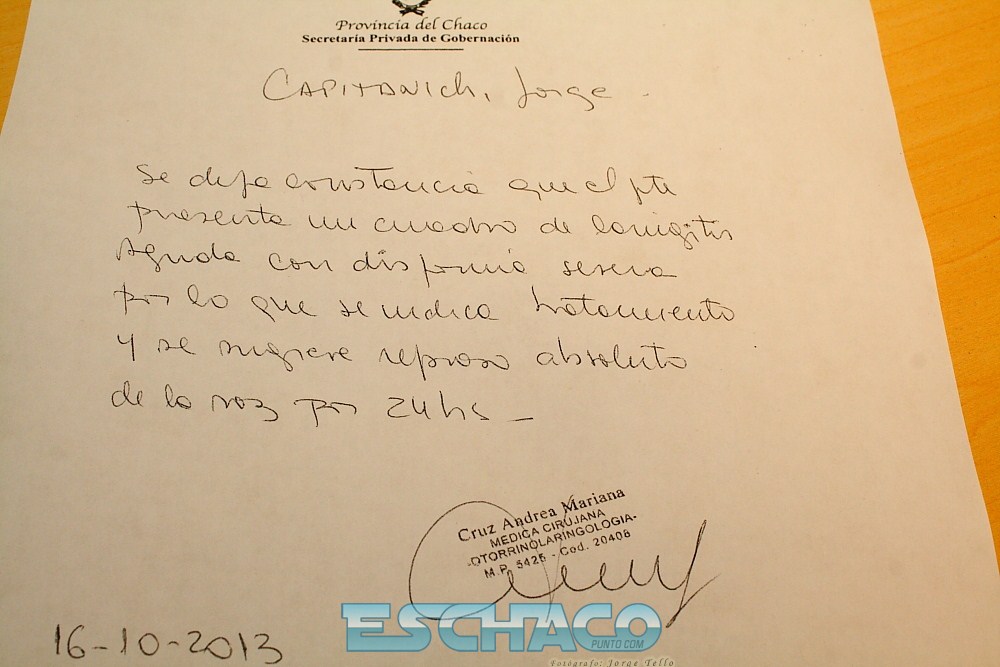 Provincia del Chaco
Secretaría Privada de Gobernación
CAPITANICh, Jorge.
Se deja constancia que el pte
presenta un cuadro de laringitis
Aguda con disfonia severa
por lo que se indica tratamiento
y se sugiere reposo absoluto
de la voz por 24 hs _
Cruz Andrea Mariana
MEDICA CIRUJANA
-OTORRINOLARINGOLOGIA-
M.P. 5425 - Cod. 20406
ESCHACO
PUNTO COM
Fotógrafo: Jorge Tello
16-10-2013